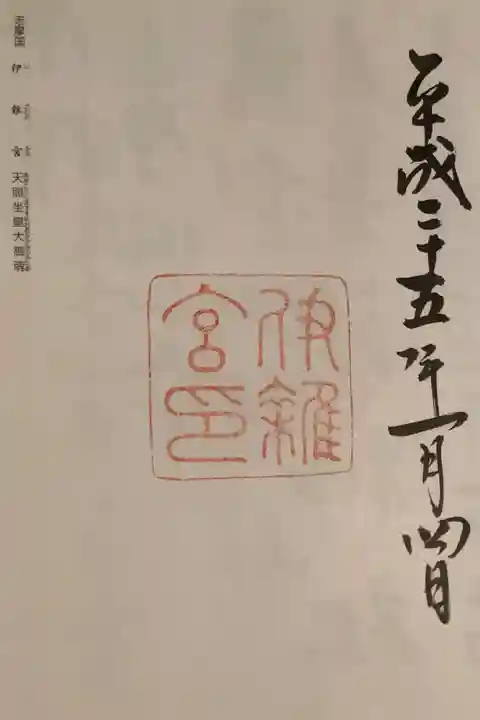 平成二十五年一月四日
伊雑
宮印
志摩国 伊雑宮 天照坐皇大御神御魂